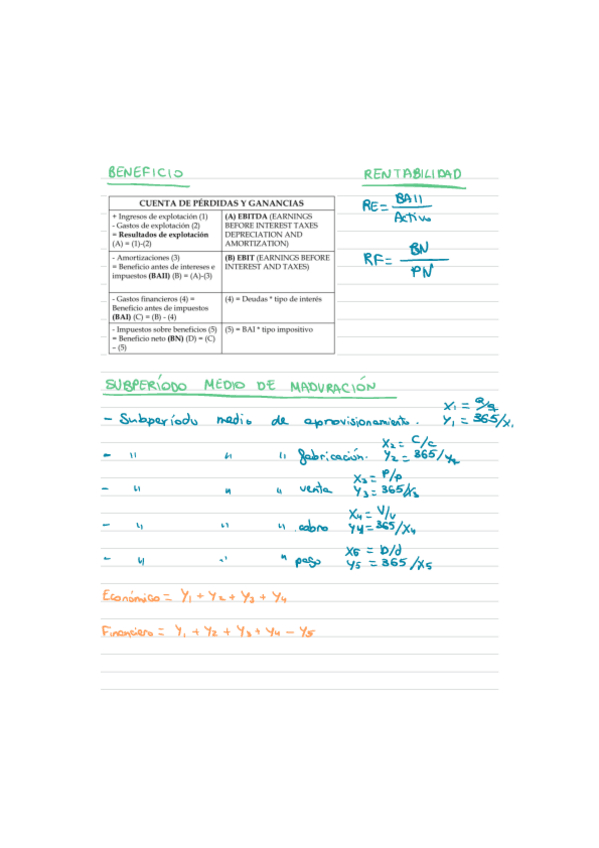 BENEFICIO
RENTABILIDAD
CUENTA DE PÉRDIDAS Y GANANCIAS
+ Ingresos de explotación (1)
- Gastos de explotación (2)
= Resultados de explotación
(A) = (1)-(2)
(A) EBITDA (EARNINGS
BEFORE INTEREST TAXES
DEPRECIATION AND
AMORTIZATION)
- Amortizaciones (3)
= Beneficio antes de intereses e
impuestos (BAII) (B) = (A)-(3)
(B) EBIT (EARNINGS BEFORE
INTEREST AND TAXES)
- Gastos financieros (4) =
Beneficio antes de impuestos
(BAI) (C) = (B) - (4)
(4) = Deudas * tipo de interés
- Impuestos sobre beneficios (5)
= Beneficio neto (BN) (D) = (C)
– (5)
(5) = BAI * tipo impositivo
RE = BAII
Activo
RF = BN
PN
SUBPERÍODO MEDIO DE MADURACIÓN
- Subperíodo medio de aprovisionamiento.
X1 = a/q
Y1 = 365/X1
- " " " fabricación.
X2 = C/c
Y2 = 365/X2
- " " " venta
X3 = P/p
Y3 = 365/X3
- " " " cobro
X4 = V/v
Y4 = 365/X4
- " " " pago
X5 = D/d
Y5 = 365/X5
Económico = Y1 + Y2 + Y3 + Y4
Financiero = Y1 + Y2 + Y3 + Y4 - Y5